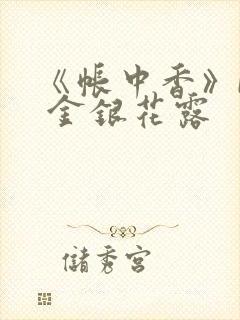 《帐中香》
金银花露
储秀宫